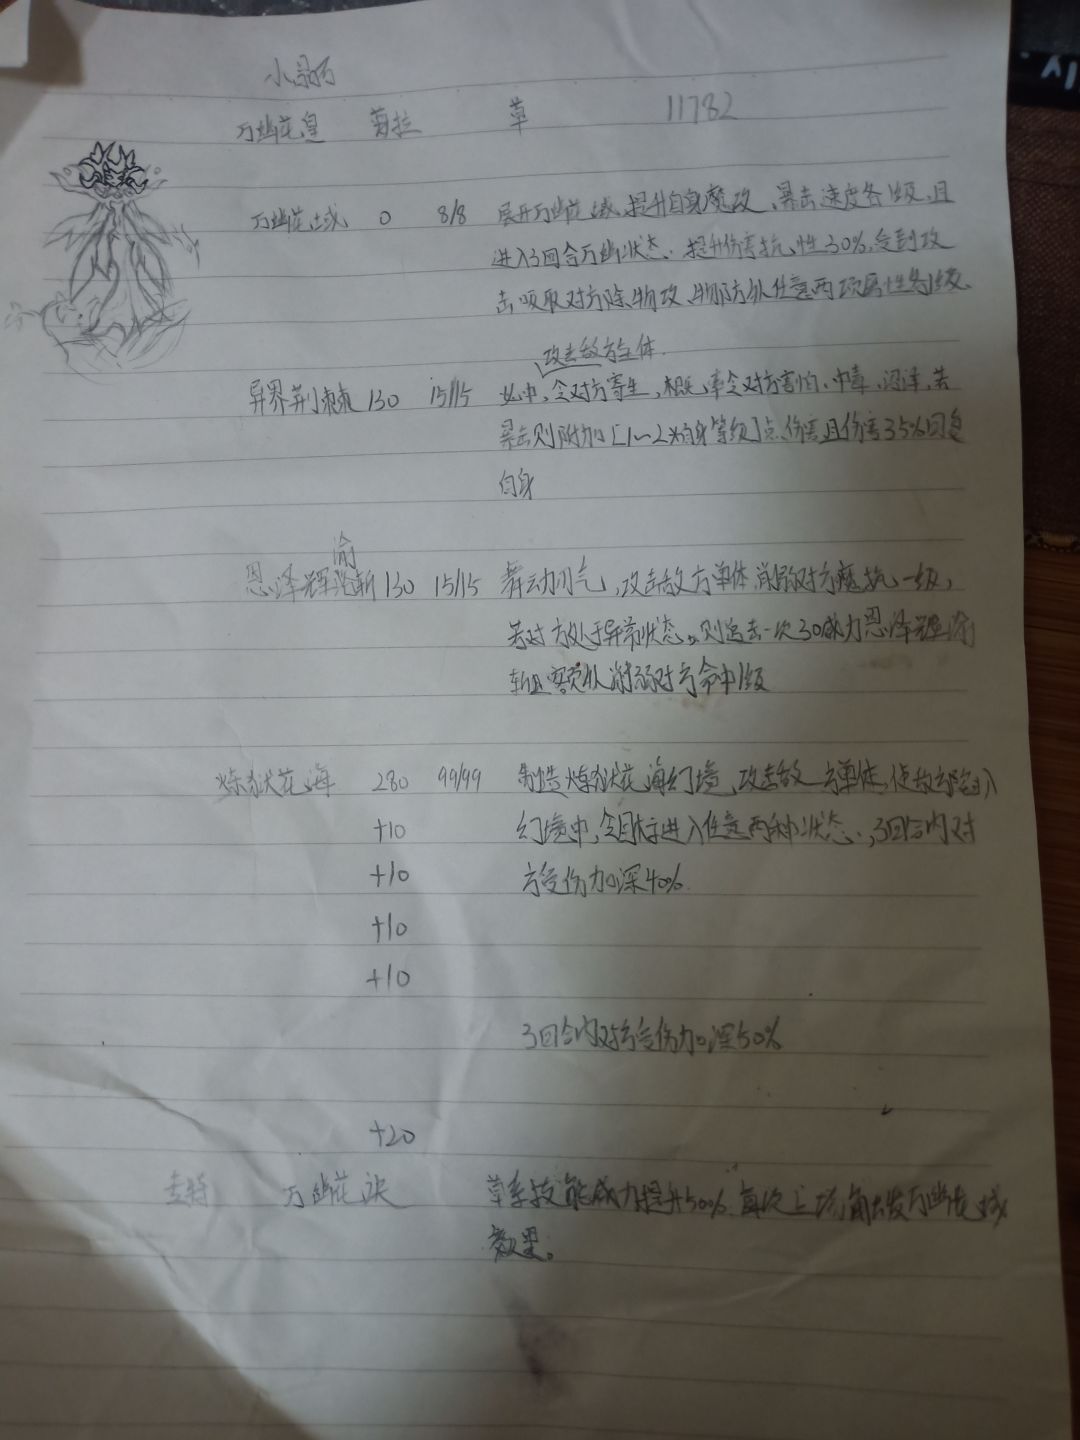 万幽花皇 剪拉 草 11782
万幽花域 0 8/8 展开万幽花域,提升自身魔攻、暴击速度各1级,且
进入3回合万幽状态.提升伤害抗性30%.受到攻
击吸取对方除物攻、物防外任意两项属性各1级.
攻击敌方全体.
异界荆棘 130 15/15 必中,令对方寄生,概率令对方害怕、中毒、,若
暴击则附加[1~2×自身等级]点伤害且伤害35%回复
自身
渝
恩泽辉斩 130 15/15 舞动刀气,攻击敌方单体,削弱对方魔抗一级,
若对方处于异常状态,则追击一次30威力恩泽辉渝
斩且额外削弱对方命中1级
炼狱花海 280 99/99 制造炼狱花海幻境,攻击敌方单体,使敌方陷入
+10 幻境中,令目标进入任意两种状态.,3回合内对
+10 方受伤加深40%.
+10
+10
3回合内对方受伤加深50%
+20
专特 万幽花诀 草系技能威力提升50%.每次上场触发万幽花域
效果。